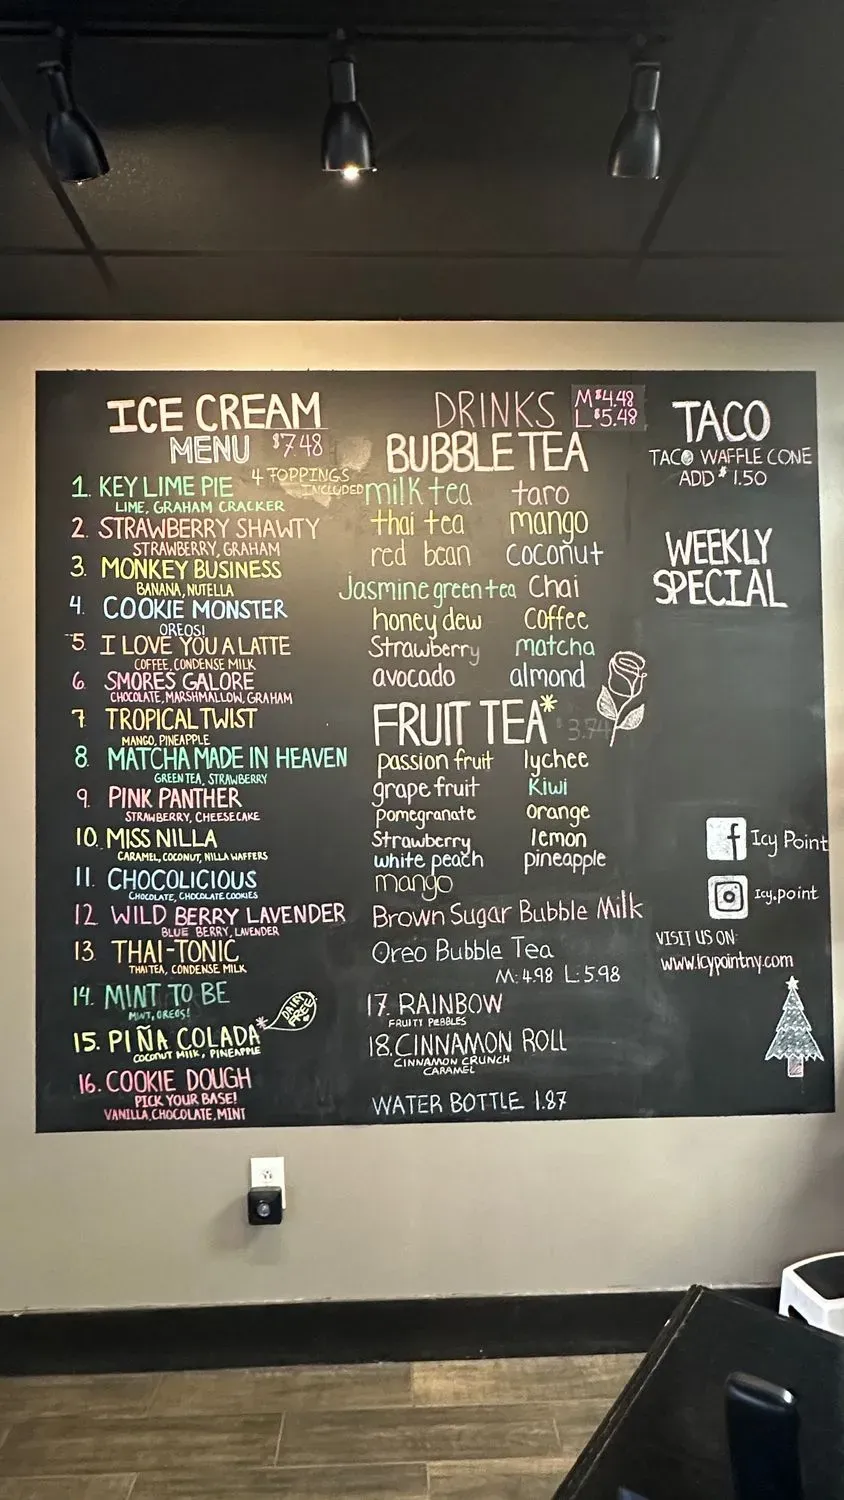 ICE CREAM
MENU $7.48
4 TOPPINGS
INCLUDED
1. KEY LIME PIE
LIME, GRAHAM CRACKER
2. STRAWBERRY SHAWTY
STRAWBERRY, GRAHAM
3. MONKEY BUSINESS
BANANA, NUTELLA
4. COOKIE MONSTER
OREOS!
5. I LOVE YOU A LATTE
COFFEE, CONDENSE MILK
6. SMORES GALORE
CHOCOLATE, MARSHMALLOW, GRAHAM
7 TROPICAL TWIST
MANGO, PINEAPPLE
8. MATCHA MADE IN HEAVEN
GREEN TEA, STRAWBERRY
9. PINK PANTHER
STRAWBERRY, CHEESECAKE
10. MISS NILLA
CARAMEL, COCONUT, NILLA WAFFERS
11. CHOCOLICIOUS
CHOCOLATE, CHOCOLATE COOKIES
12 WILD BERRY LAVENDER
BLUE BERRY, LAVENDER
13 THAI-TONIC
THAI TEA, CONDENSE MILK
14. MINT TO BE
MINT, OREOS!
15. PIÑA COLADA*
COCONUT MILK, PINEAPPLE
DAIRY
FREE!
16. COOKIE DOUGH
PICK YOUR BASE!
VANILLA, CHOCOLATE, MINT
DRINKS M $4.48
L $5.48
BUBBLE TEA
milk tea taro
thai tea mango
red bean coconut
Jasmine green tea Chai
honey dew Coffee
Strawberry matcha
avocado almond
FRUIT TEA* $3.74
passion fruit lychee
grapefruit Kiwi
pomegranate orange
Strawberry lemon
white peach pineapple
mango
Brown Sugar Bubble Milk
Oreo Bubble Tea
M: 4.98 L: 5.98
17. RAINBOW
FRUITY PEBBLES
18. CINNAMON ROLL
CINNAMON CRUNCH
CARAMEL
WATER BOTTLE 1.87
TACO
TACO WAFFLE CONE
ADD $1.50
WEEKLY
SPECIAL
f Icy Point
Icy.point
VISIT US ON:
www.Icypointny.com